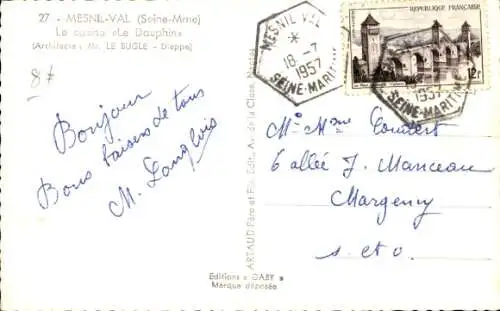 27 - MESNIL-VAL (Seine-Mme)
Le casino «Le Dauphin»
(Architecte : Mr. LE BUGLE - Dieppe)
8#
Bonjour
Bons baisers de tous
M. Langlois
ARTAUD Père et Fils Edit., Av. de la Close, Nantes
Editions « GABY »
Marque déposée
MESNIL VAL
*
18 -7
1957
SEINE-MARITIME
REPUBLIQUE FRANÇAISE
12f
1957
SEINE-MARITIME
Mr Mme
6 allée J. Manceau
Margency
S. et O.